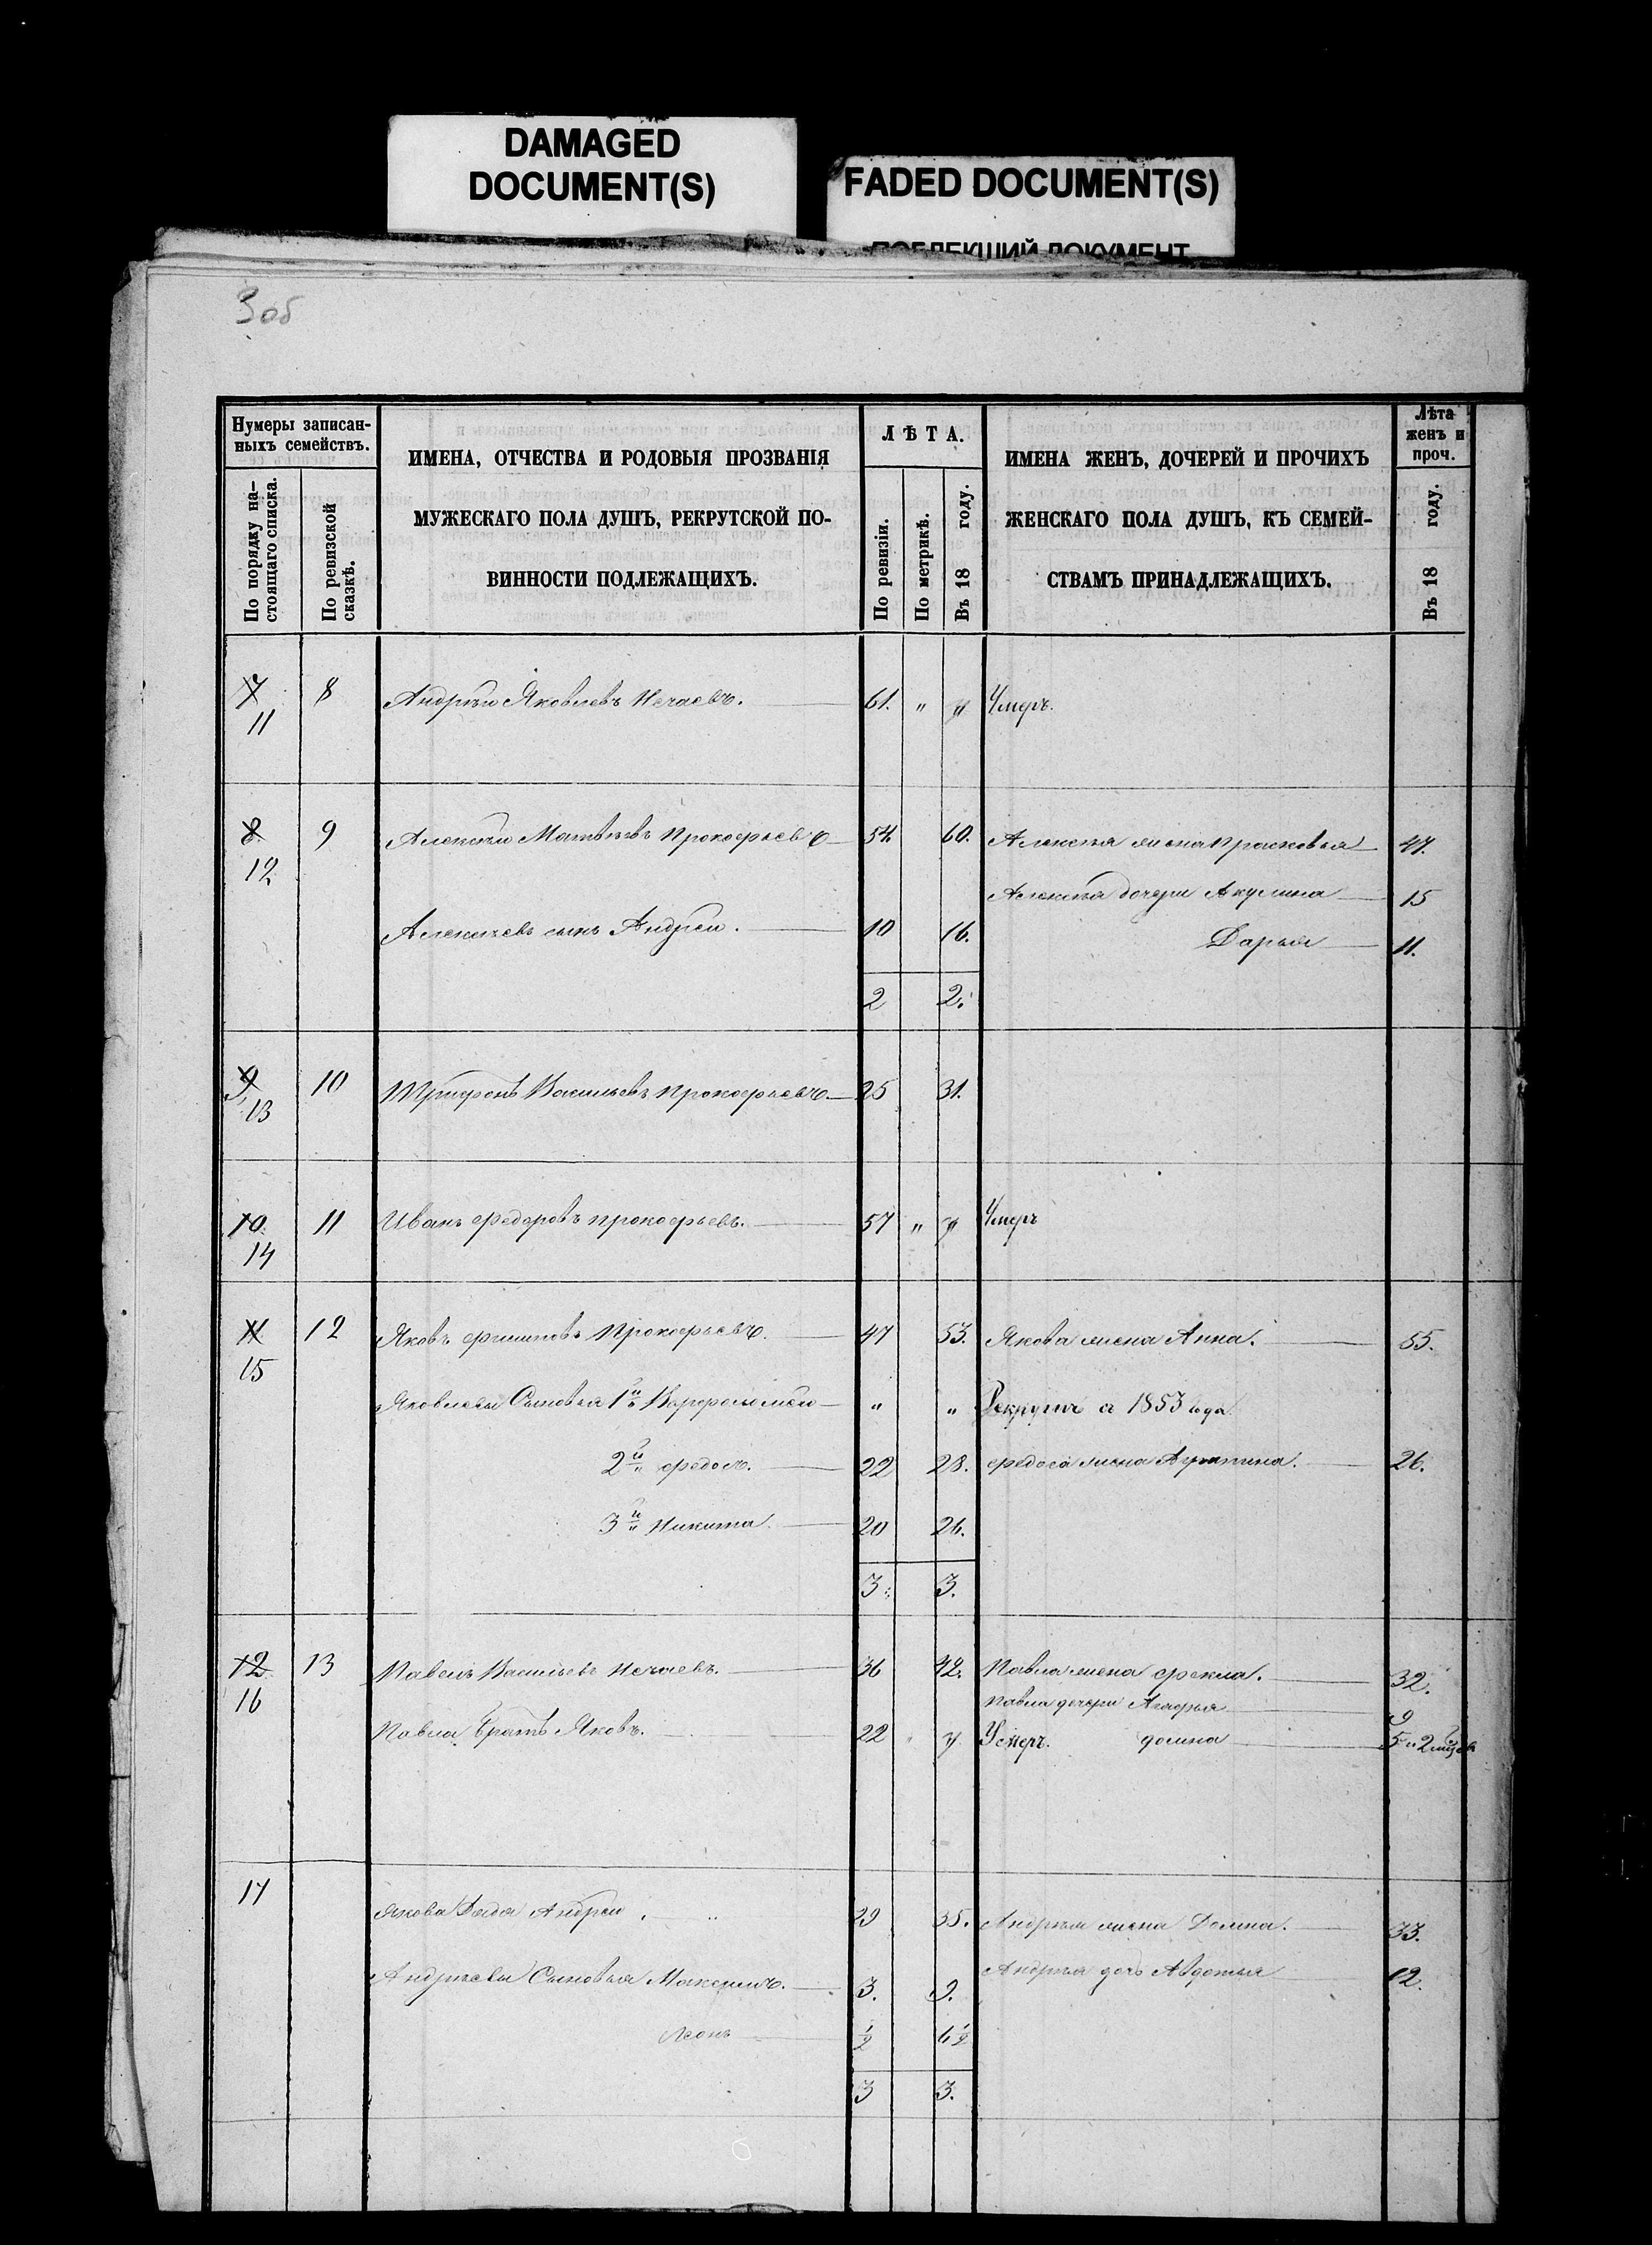 DAMAGED
DOCUMENT(S)
FADED DOCUMENT(S)
ПОБЛЕКШИЙ ДОКУМЕНТ
3 об
Нумеры записан-
ныхъ семействъ.
По порядку на-
стоящаго списка.
По ревизской
сказкѣ.
ИМЕНА, ОТЧЕСТВА И РОДОВЫЯ ПРОЗВАНІЯ
МУЖЕСКАГО ПОЛА ДУШЪ, РЕКРУТСКОЙ ПО-
ВИННОСТИ ПОДЛЕЖАЩИХЪ.
ЛѢТА.
По ревизіи.
По метрикѣ.
Въ 18 году.
ИМЕНА ЖЕНЪ, ДОЧЕРЕЙ И ПРОЧИХЪ
ЖЕНСКАГО ПОЛА ДУШЪ, КЪ СЕМЕЙ-
СТВАМЪ ПРИНАДЛЕЖАЩИХЪ.
Лѣта
женъ и
проч.
Въ 18 году.
7 8 Андрей Яковлевъ Нечаевъ. 61. " " Умеръ.
11
8 9 Алексѣй Матвѣевъ Прокофьевъ 54 60. Алексѣя жена Прасковья 47.
12
Алексѣя дочери Акулина 15
Алексѣевъ сынъ Андрей. 10 16. Дарья 11.
2 2.
9 10 Трифонъ Васильевъ Прокофьевъ 25 31.
13
10 11 Иванъ Федоровъ Прокофьевъ. 57 " " Умеръ
14
11 12 Яковъ Филиповъ Прокофьевъ. 47 53. Якова жена Анна. 55.
15
Яковлевы Сыновья 1й Варфоломей " " Рекрутъ с 1853 года
2й Федосъ. 22 28. Федоса жена Агрипина. 26.
3й Никита. 20 26.
3. 3.
12 13 Павелъ Васильевъ Нечаевъ. 36 42. Павла жена Фекла. 32.
16
Павла дочери Агафья 9
Павла братъ Яковъ. 22 " " Умеръ. Домна 5 и 2 мѣся
17
Якова дядя Андрей 29 35. Андрея жена Домна. 33.
Андреевы Сыновья Максимъ. 3. 9. Андрея дочь Авдотья 12.
Леонъ ½ 6½
3 3.